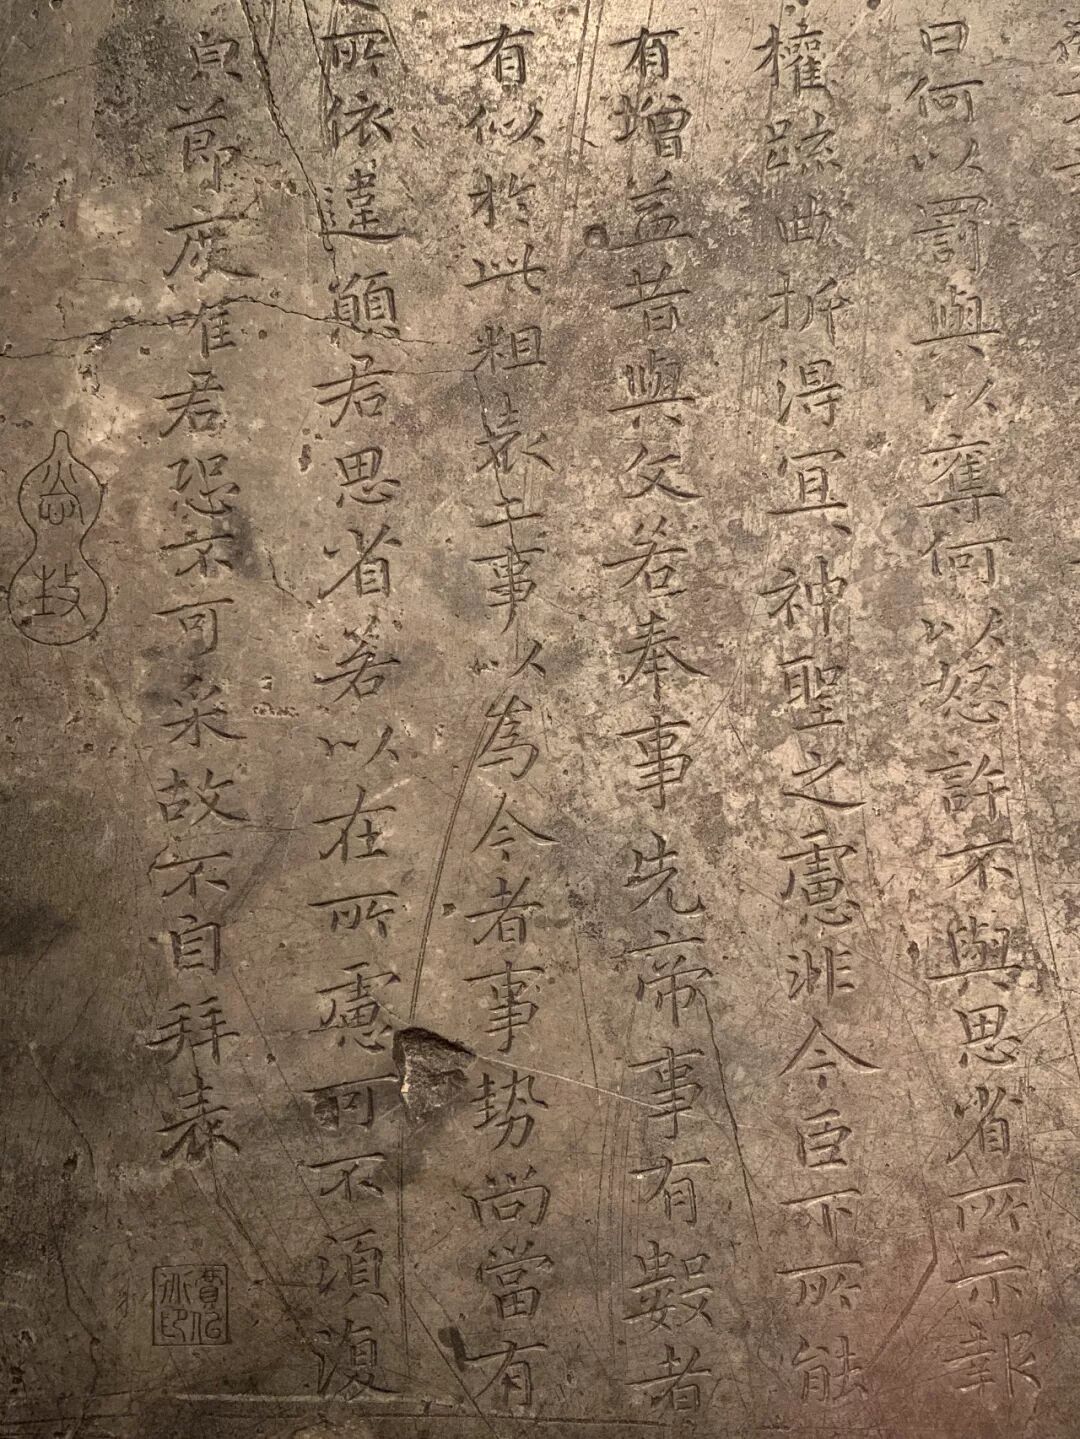 曰何以罰與以奪何以怒許不與思省所示報
權疏曲折得宜神聖之慮非今臣下所能
有增益昔與文若奉事先帝事有數者
有似於此粗表二事以為今者事勢尚當有
所依違願君思省若以在所慮可不須復
皃節度唯君恐不可采故不自拜表